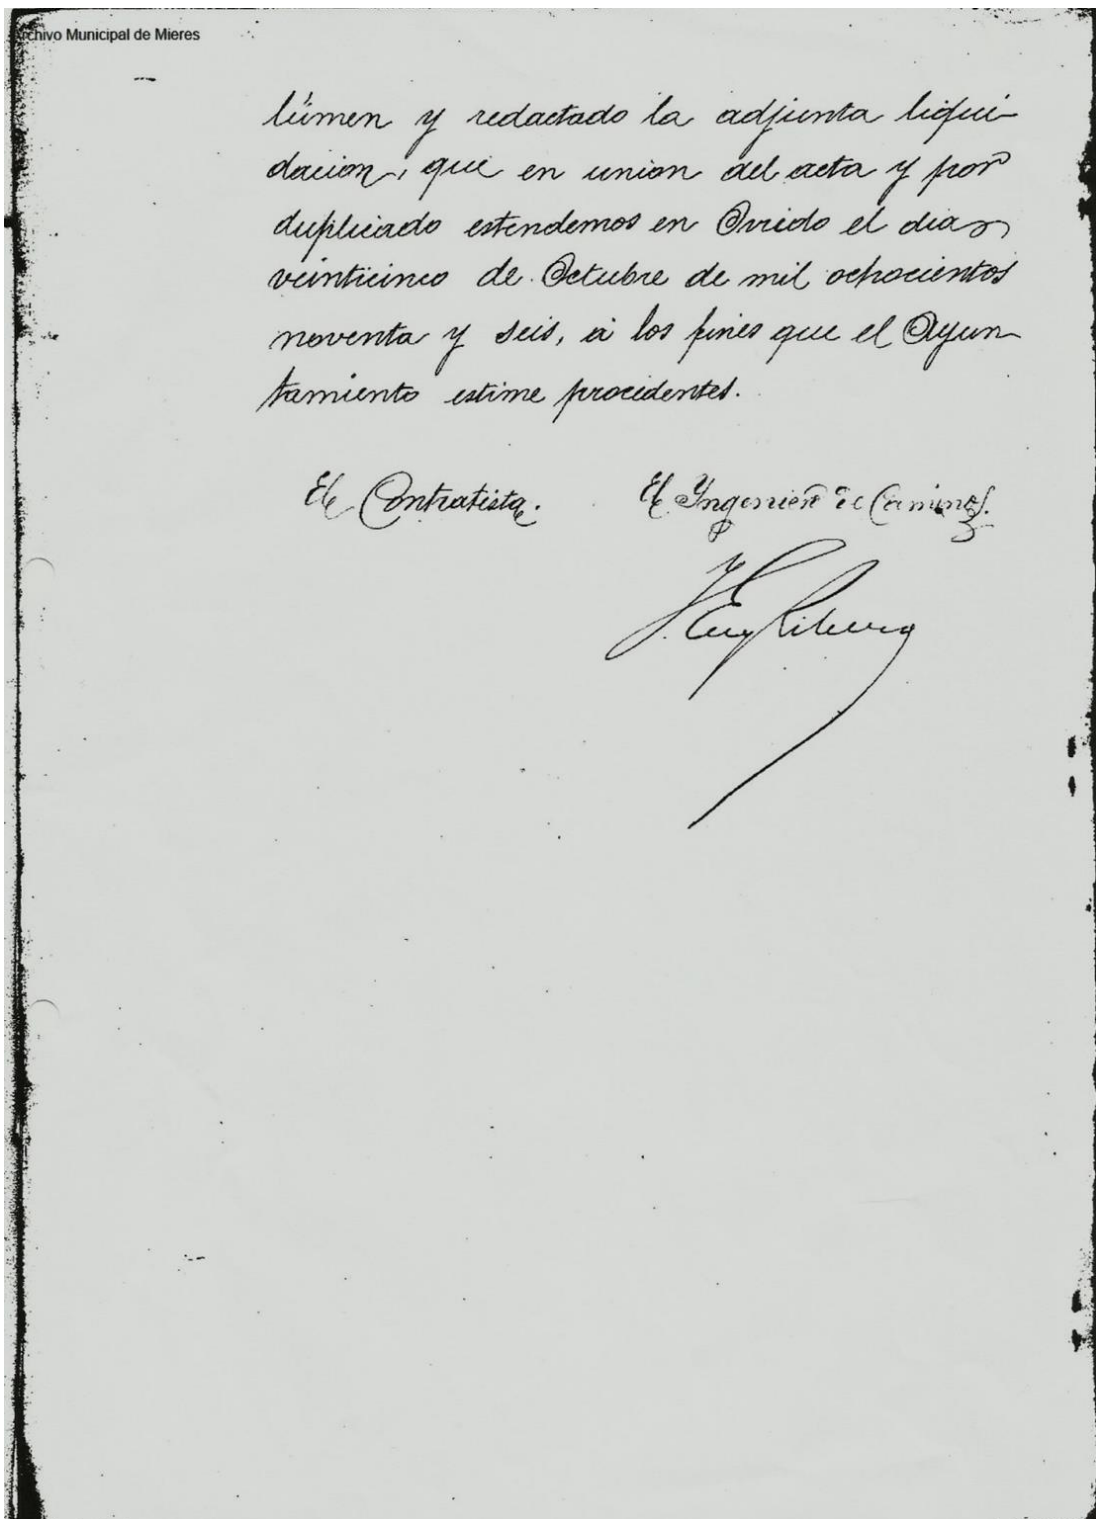 Archivo Municipal de Mieres
lúmen y redactado la adjunta liqui-
dacion, que en union del acta y por
duplicado estendemos en Oviedo el dia
veinticinco de Octubre de mil ochocientos
noventa y seis, á los fines que el Ayun-
tamiento estime procedentes.
El Contratista.
El Ingeniero de Caminos.